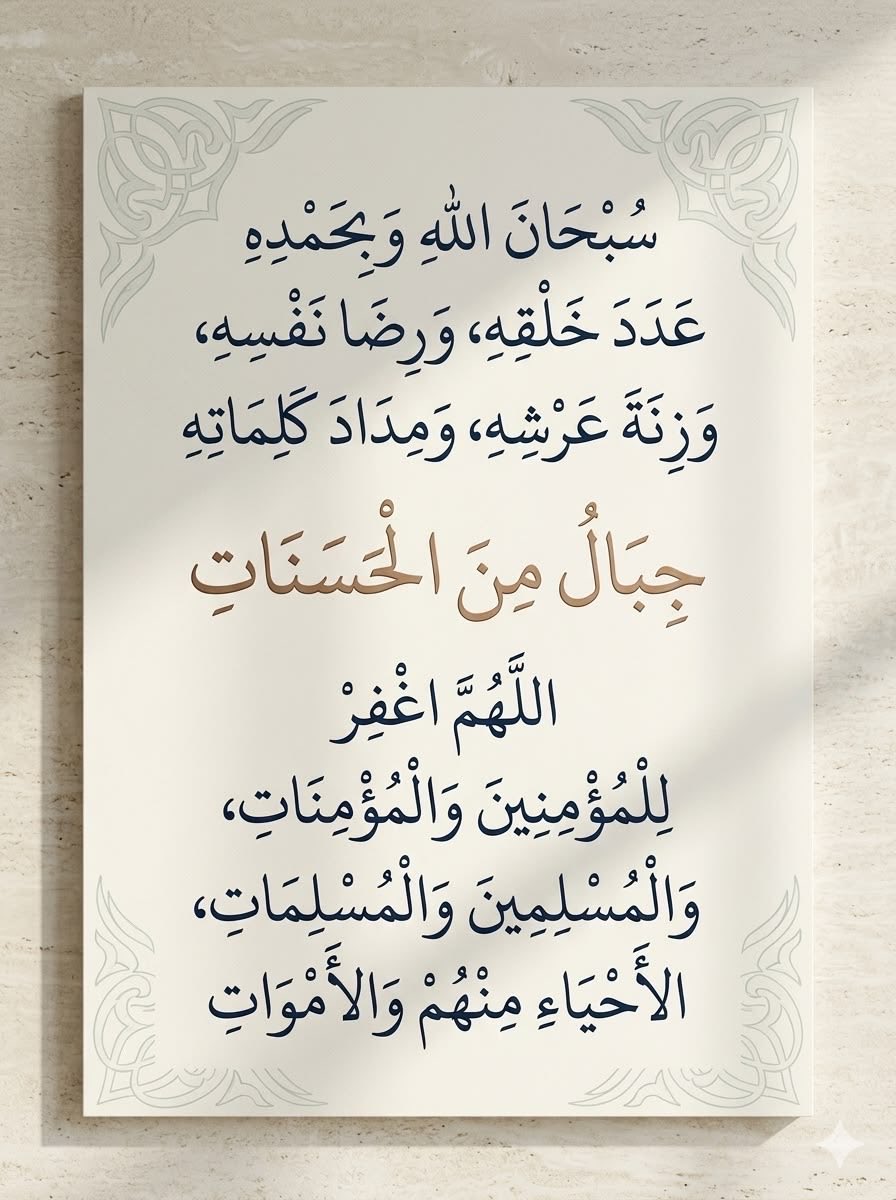 سُبْحَانَ اللهِ وَبِحَمْدِهِ
عَدَدَ خَلْقِهِ، وَرِضَا نَفْسِهِ،
وَزِنَةَ عَرْشِهِ، وَمِدَادَ كَلِمَاتِهِ
جِبَالُ مِنَ الْحَسَنَاتِ
اللَّهُمَّ اغْفِرْ
لِلْمُؤْمِنِينَ وَالْمُؤْمِنَاتِ،
وَالْمُسْلِمِينَ وَالْمُسْلِمَاتِ،
الأَحْيَاءِ مِنْهُمْ وَالأَمْوَاتِ